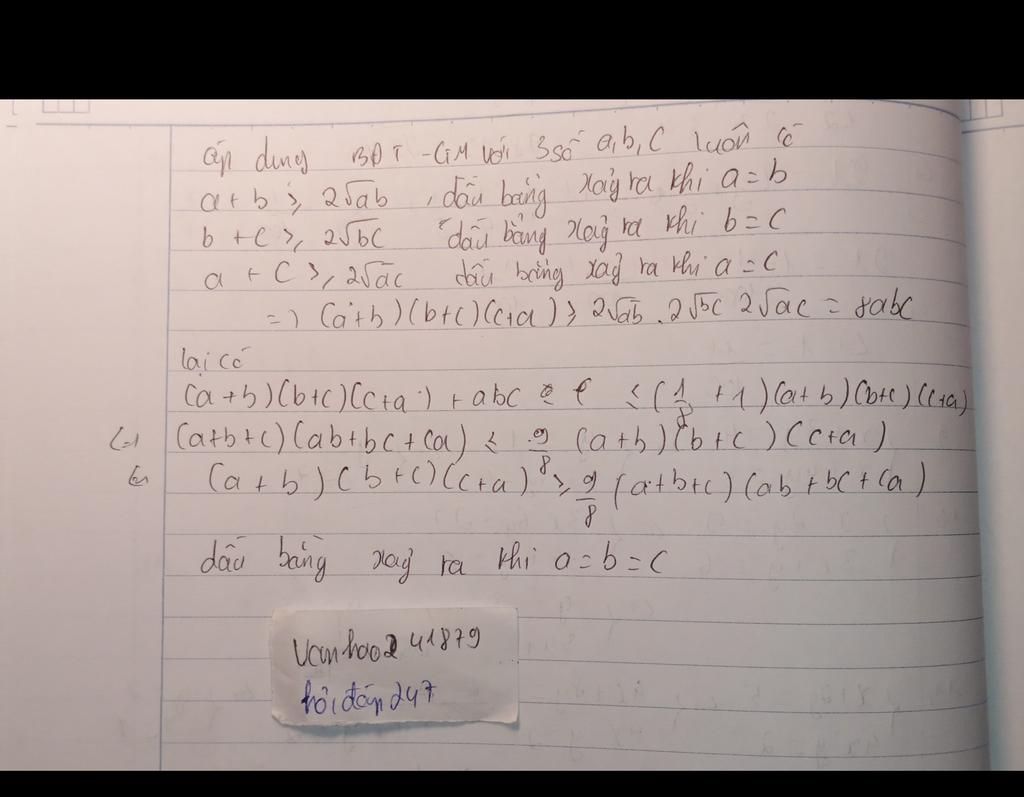 áp dụng BĐT -GM với 3 số a, b, c luôn có
a + b ≥ 2√ab , dấu bằng xảy ra khi a = b
b + c ≥ 2√bc dấu bằng xảy ra khi b = c
a + c ≥ 2√ac dấu bằng xảy ra khi a = c
=> (a+b)(b+c)(c+a) ≥ 2√ab . 2√bc 2√ac = 8abc
lại có
(a+b)(b+c)(c+a) + abc ≤ (1/8 + 1)(a+b)(b+c)(c+a)
(=) (a+b+c)(ab+bc+ca) ≤ 9/8 (a+b)(b+c)(c+a)
(a+b)(b+c)(c+a) ≥ 9/8 (a+b+c)(ab+bc+ca)
dấu bằng xảy ra khi a = b = c
vanhao241879
hỏi đáp 247